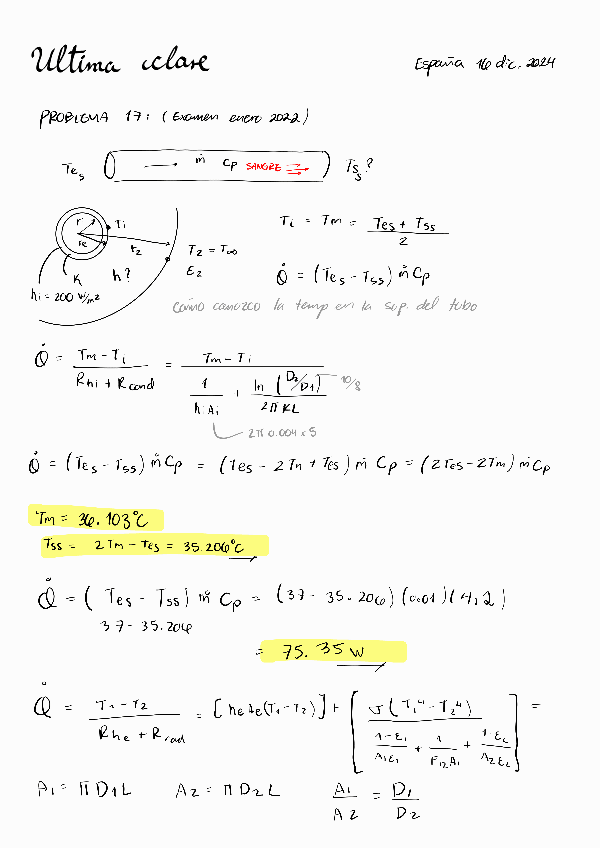 Ultima clase
España 16 dic. 2024
PROBLEMA 17: (Examen enero 2022)
Te_s → ṁ Cp SANGRE Ts_s?
r Ti
re r2
K h?
hi = 200 W/m2
T2 = T∞
ε2
Ti = Tm = (Tes + Tss) / 2
Q̇ = (Tes - Tss) ṁ Cp
cómo conozco la temp en la sup. del tubo
Q̇ = (Tm - Ti) / (Rhi + Rcond) = (Tm - Ti) / (1/(h·Ai) + ln(D2/D1)/(2πKL))
10/8
2π 0.004 x 5
Q̇ = (Tes - Tss) ṁ Cp = (Tes - 2Tm + Tes) ṁ Cp = (2Tes - 2Tm) ṁ Cp
Tm = 36.103°C
Tss = 2Tm - Tes = 35.206°C
Q̇ = (Tes - Tss) ṁ Cp = (37 - 35.206)(0.01)(4,2)
37 - 35.206
= 75.35 W
Q̇ = (T1 - T2) / (Rhe + Rrad) = [he Ae(T1 - T2)] + [σ(T1⁴ - T2⁴) / ((1-ε1)/(A1ε1) + 1/(F12A1) + (1-ε2)/(A2ε2))] =
A1 = π D1 L A2 = π D2 L A1/A2 = D1/D2